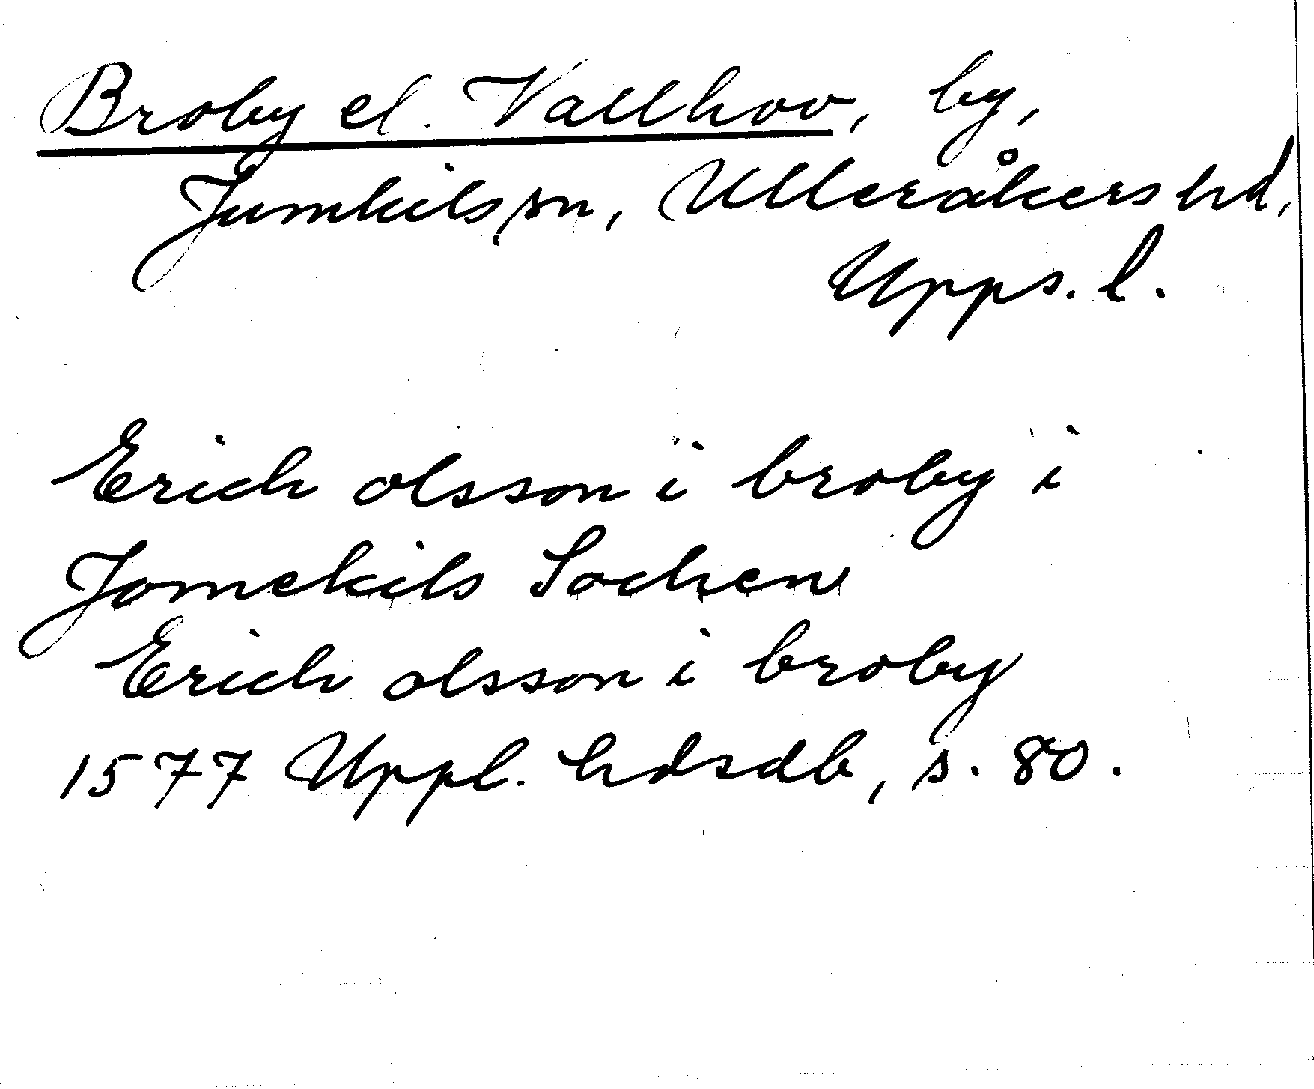 Broby el. Vallhov, by,
Jumkils sn, Ulleråkers hd,
Upps. l.
Erich olsson i broby i
Jomekils Sochen
Erich olsson i broby
1577 Uppl. hdsdb, s. 80.